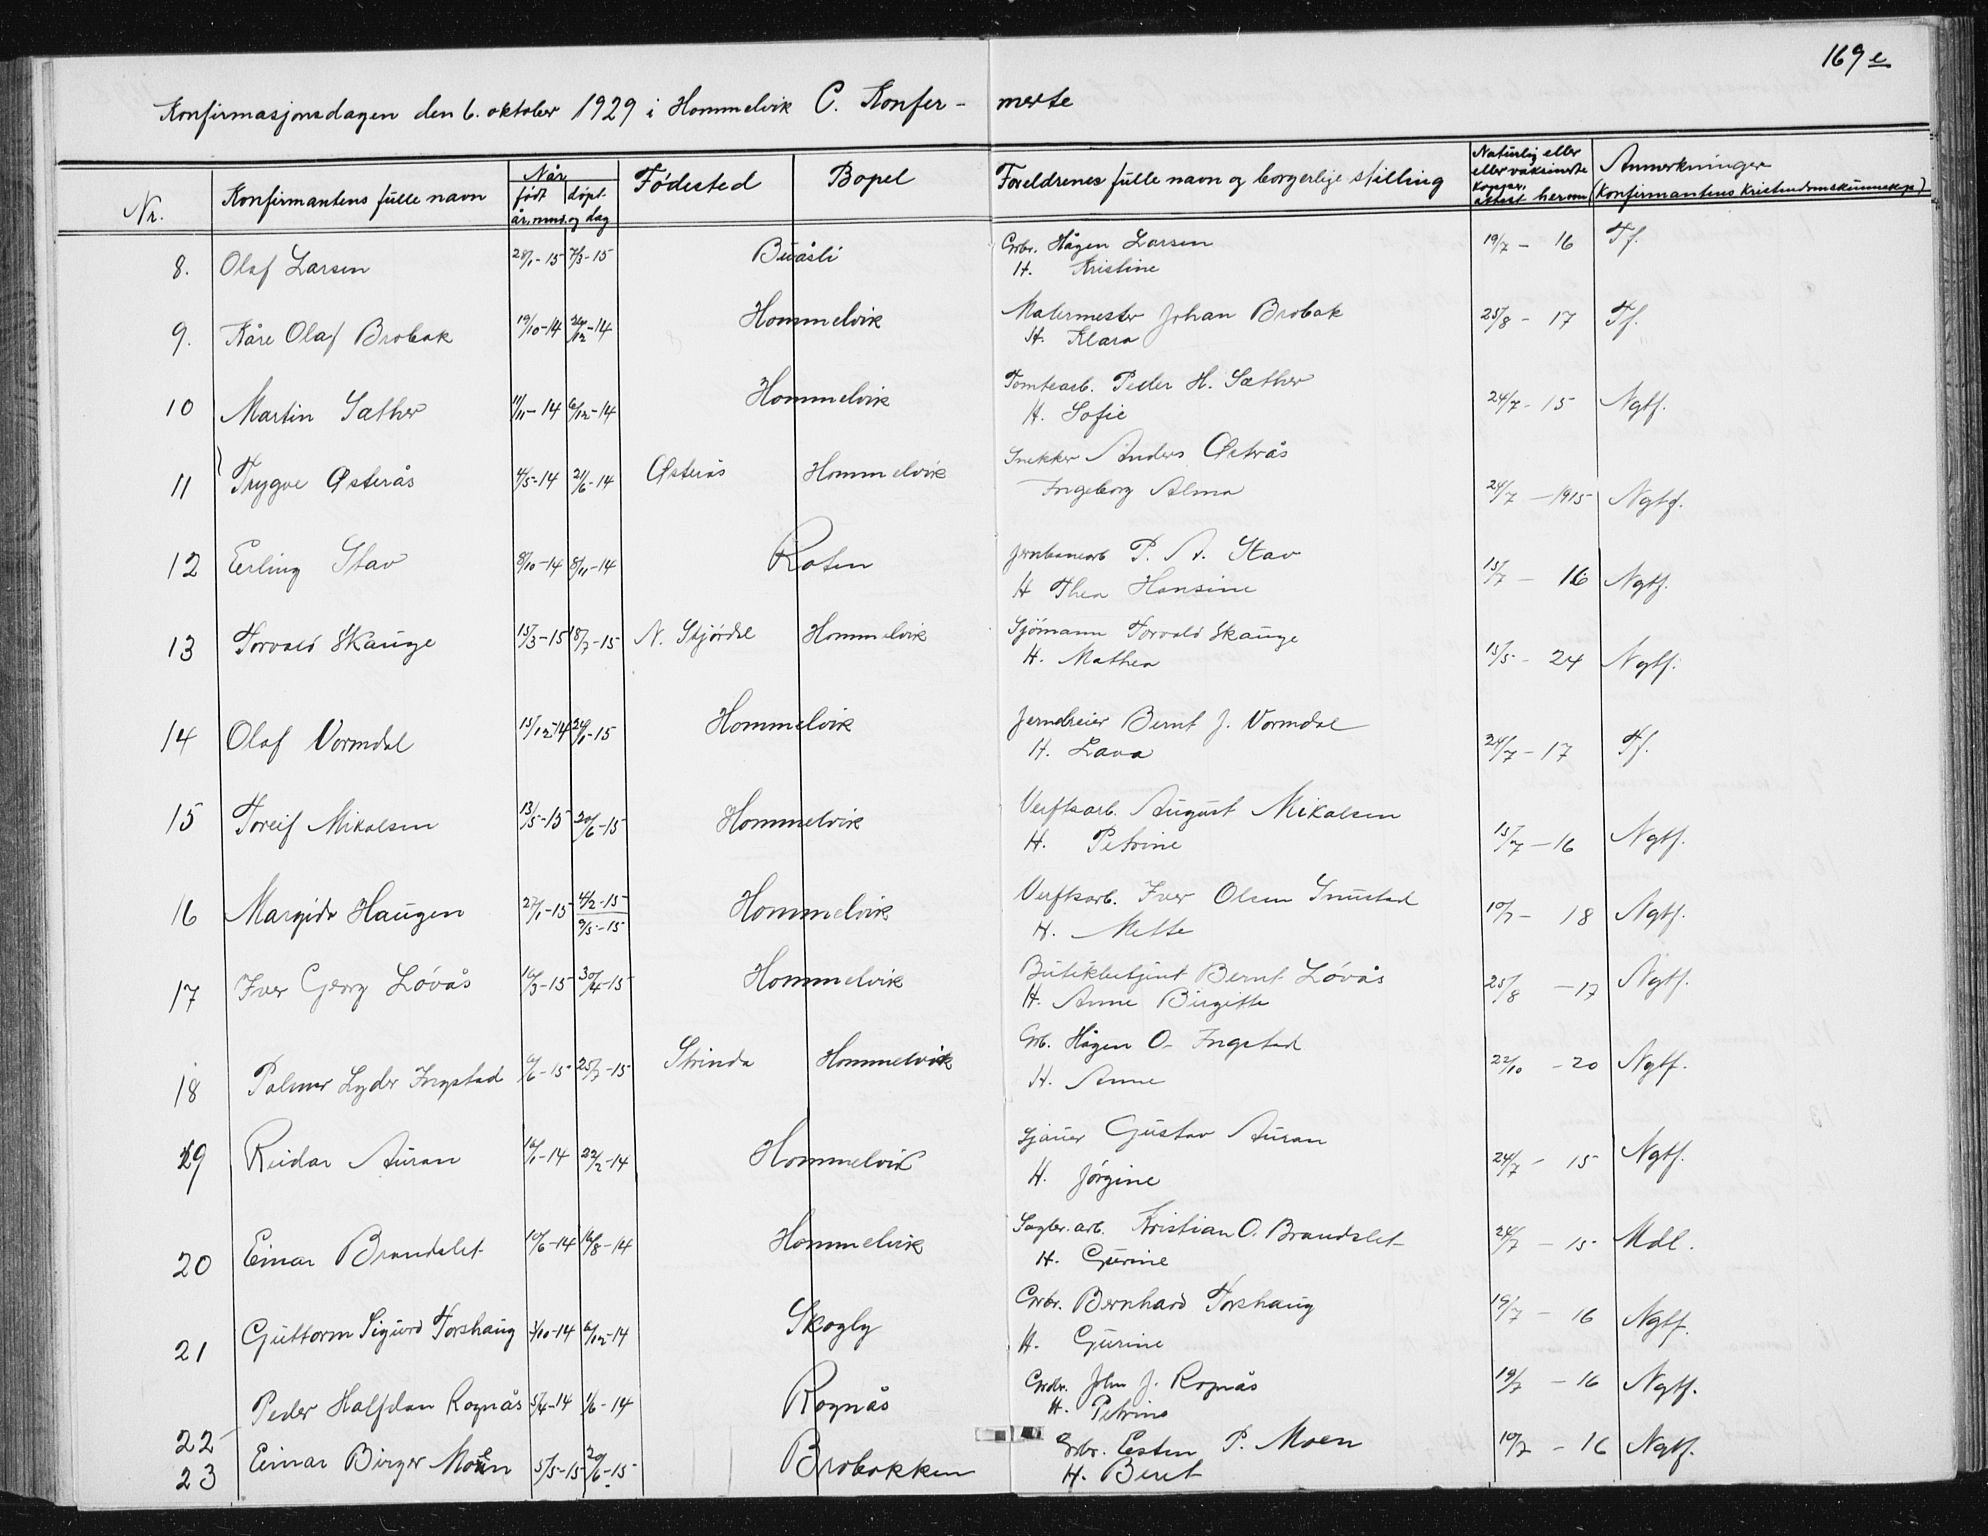 169 e
Konfirmasjonsdagen den 6. oktober 1929 i Hommelvik C. Konfer- merte
Nr. Konfirmantens fulle navn Når født døpt år, mnd. og dag Fødested Bopel Foreldrenes fulle navn og borgerlige stilling Naturlig eller eller vaksinerte attest herom Anmerkninger (Konfirmantens kristendomskunnskap)
8. Olaf Larsen 28/1-15 7/3-15 Buåsli Grbr. Hågen Larsen 19/7 - 16 Tf.
H. Kristine
9. Kåre Olaf Brobak 19/10-14 26/12-14 Hommelvik Malermester Johan Brobak 25/8 - 17 Tf.
H. Klara
10 Martin Sæther 11/11-14 6/12-14 Hommelvik Tomtearb. Peder H. Sæther 24/7 - 15 Ngtf.
H. Sofie
11 Trygve Østerås 4/5-14 21/6-14 Østerås Hommelvik Snekker Anders Østrås
Ingeborg Alma 24/7 - 1915 Ngtf.
12 Erling Stav 8/10-14 8/11-14 Roten Jernbanearb P. A. Stav 15/7 - 16 Ngtf.
H Thea Hansine
13 Torvald Skauge 15/3-15 18/7-15 N. Stjørdal Hommelvik Sjømann Torvald Skauge 15/5 - 24 Ngtf.
H. Mathea
14 Olaf Vormdal 15/12-14 24/1-15 Hommelvik Jerndreier Bernt J. Vormdal 24/7 - 17 Tf.
H. Lava
15 Toreif Mikalsen 13/5-15 20/6-15 Hommelvik Verftsarb. August Mikalsen 15/7 - 16 Ngtf.
H. Petrine
16 Margido Haugen 27/1-15 4/2-15 Hommelvik Verftsarb. Iver Olsen Snustad 10/7 - 18 Ngtf.
9/5-15 H. Mette
17 Iver Georg Løvås 16/3-15 30/4-15 Hommelvik Butikkbetjent Bernt Løvås 25/8 - 17 Ngtf.
H. Anne Birgitte
18 Palmer Lyder Ingstad 6/6-15 25/7-15 Strinda Hommelvik Grb. Hågen O. Ingstad 22/10 - 20 Ngtf.
H. Anne
19 Reidar Auran 16/1-14 22/2-14 Hommelvik Sjauer Gustav Auran 24/7 - 15 Ngtf.
H. Jørgine
20 Einar Brandslet 10/6-14 16/8-14 Hommelvik Sagbr. arb. Kristian O. Brandslet 24/7 - 15 Mdl.
H. Gurine
21 Guttorm Sigurd Torshaug 3/10-14 6/12-14 Skogly Grbr. Bernhard Torshaug 19/7 - 16 Ngtf.
H. Gurine
22 Peder Halfdan Rognås 5/4-14 1/6-14 Rognås Grbr. John J. Rognås 19/7 - 16 Ngtf.
H. Petrine
23 Einar Birger Moen 5/5-15 20/6-15 Brobakken Grbr. Esten P. Moen 10/7 - 16 Ngtf.
H. Beret